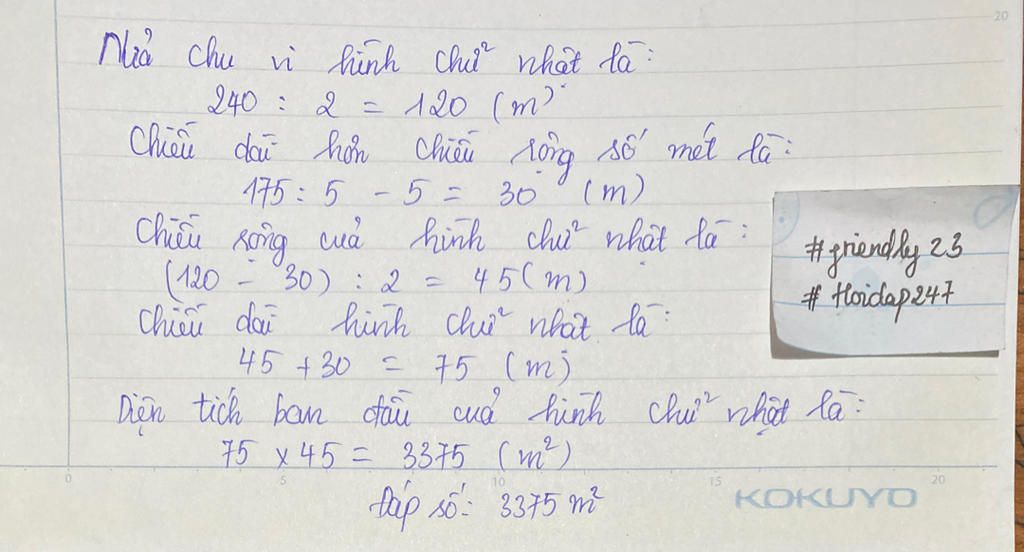 Nửa chu vi hình chữ nhật là:
240 : 2 = 120 (m)
Chiều dài hơn chiều rộng số mét là:
175 : 5 - 5 = 30 (m)
Chiều rộng của hình chữ nhật là:
(120 - 30) : 2 = 45 (m)
Chiều dài hình chữ nhật là:
45 + 30 = 75 (m)
Diện tích ban đầu của hình chữ nhật là:
75 x 45 = 3375 (m²)
Đáp số: 3375 m²
#friendly23
#Hoidap247
20
0 5 10 15 20
KOKUYO